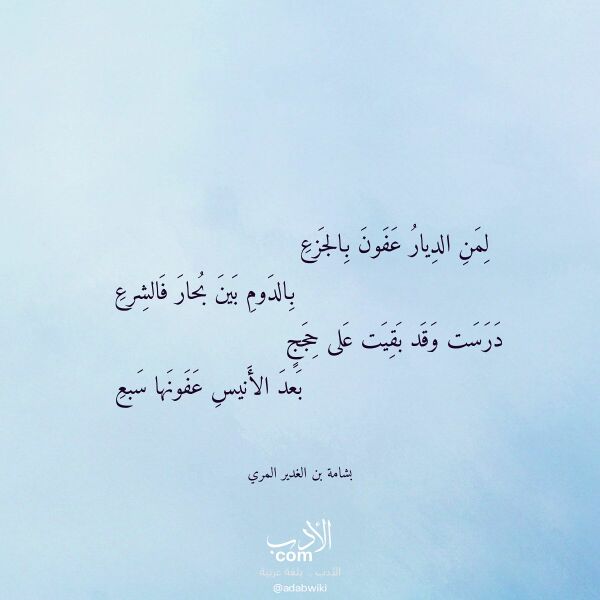 لِمَنِ الدِيارُ عَفَونَ بِالجَزعِ
بِالدَومِ بَينَ بُحارَ فَالشِرعِ
دَرَسَت وَقَد بَقِيَت عَلى حِجَجٍ
بَعدَ الأَنيسِ عَفَونَها سَبعِ
بشامة بن الغدير المري
الأدب
com
الأدب .. بلغة عربية
@adabwiki